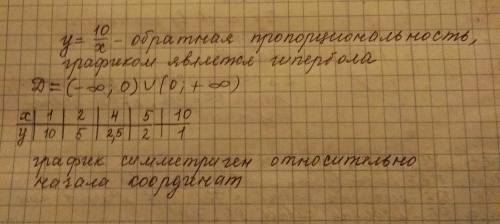 y = 10/x - обратная пропорциональность,
графиком является гипербола
D = (-∞; 0) ∪ (0; +∞)
x | 1 | 2 | 4 | 5 | 10
y | 10 | 5 | 2,5 | 2 | 1
график симметричен относительно
начала координат